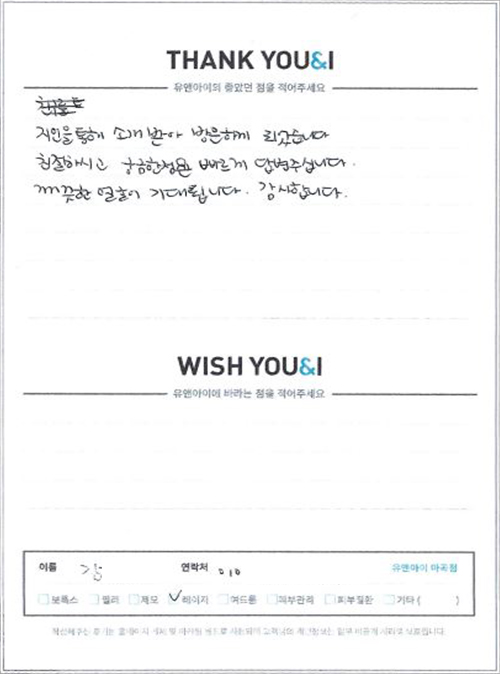 THANK YOU&I
유앤아이의 좋았던 점을 적어주세요
지인을 통해 소개 받아 방문하게 되었습니다
친절하시고 궁금한점을 빠르게 답변주십니다.
깨끗한 얼굴이 기대됩니다. 감사합니다.
WISH YOU&I
유앤아이에 바라는 점을 적어주세요
이름 강 연락처 010 유앤아이 마곡점
보톡스 필러 제모 레이저 여드름 피부관리 피부질환 기타 ( )